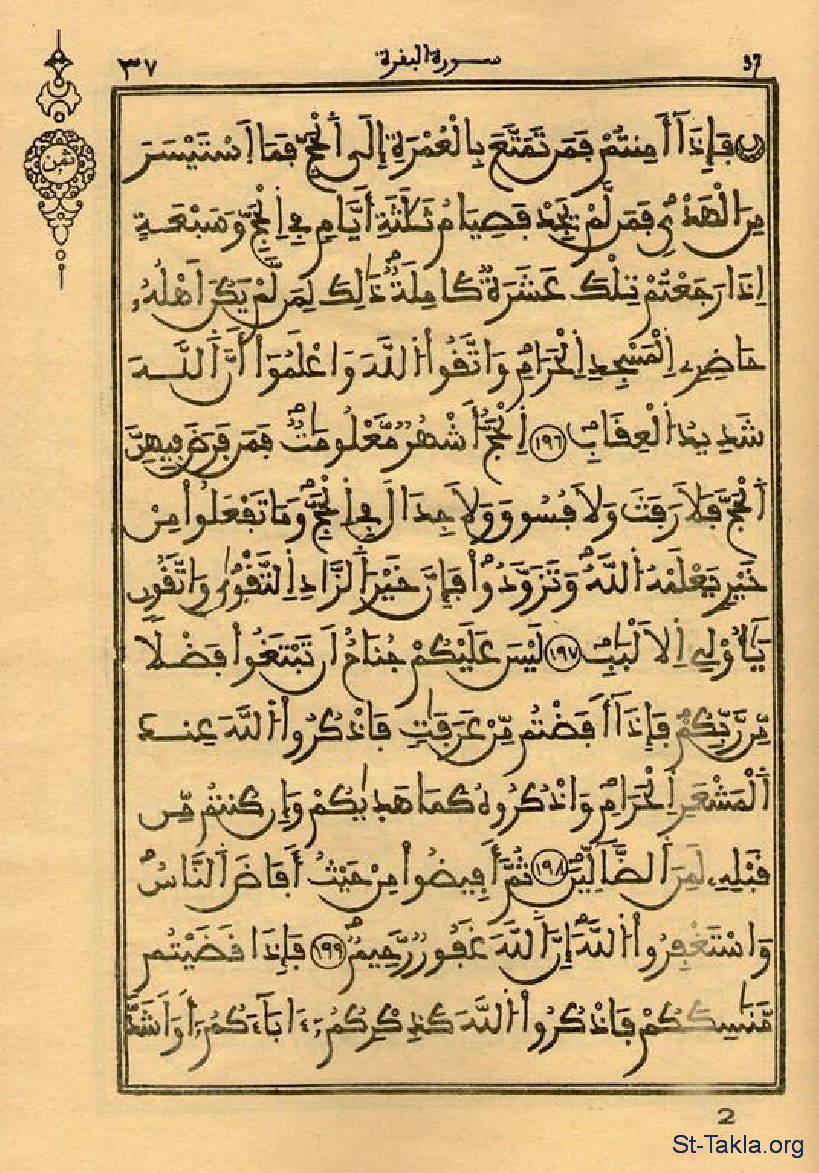 ٣٧ سورة البقرة 37
ثمن
فَإِذَآ أَمِنتُمْ فَمَن تَمَتَّعَ بِالْعُمْرَةِ إِلَى اَلْحَجِّ فَمَا اَسْتَيْسَرَ
مِنَ اَلْهَدْيِ فَمَن لَّمْ يَجِدْ فَصِيَامُ ثَلَٰثَةِ أَيَّامٍ فِے اِلْحَجِّ وَسَبْعَةٍ
اِذَا رَجَعْتُمْ تِلْكَ عَشَرَةٌ كَامِلَةٌ ذَٰلِكَ لِمَن لَّمْ يَكُنَ اَهْلُهُۥ
حَاضِرِے اِلْمَسْجِدِ اِلْحَرَامِ وَاتَّقُواْ اُللَّهَ وَاعْلَمُوٓاْ أَنَّ اَللَّهَ
شَدِيدُ اُلْعِقَابِ ١٩٦ اِلْحَجُّ أَشْهُرٌ مَّعْلُومَٰتٌ فَمَن فَرَضَ فِيهِنَّ
اَلْحَجَّ فَلَا رَفَثَ وَلَا فُسُوقَ وَلَا جِدَالَ فِے اِلْحَجِّ وَمَا تَفْعَلُواْ مِنْ
خَيْرٍ يَعْلَمْهُ اُللَّهُ وَتَزَوَّدُواْ فَإِنَّ خَيْرَ اَلزَّادِ اِلتَّقْوَىٰ وَاتَّقُونِ
يَٰٓأُوْلِے اِلَالْبَٰبِ ١٩٧ لَيْسَ عَلَيْكُمْ جُنَاحٌ اَن تَبْتَغُواْ فَضْلًا
مِّن رَّبِّكُمْ فَإِذَآ أَفَضْتُم مِّنْ عَرَفَٰتٍ فَاذْكُرُواْ اُللَّهَ عِندَ
اَلْمَشْعَرِ اِلْحَرَامِ وَاذْكُرُوهُ كَمَا هَدَيٰكُمْ وَإِن كُنتُم مِّن
قَبْلِهِۦ لَمِنَ اَلضَّآلِّينَ ١٩٨ ثُمَّ أَفِيضُواْ مِنْ حَيْثُ أَفَاضَ اَلنَّاسُ
وَاسْتَغْفِرُواْ اُللَّهَ إِنَّ اَللَّهَ غَفُورٌ رَّحِيمٌ ١٩٩ فَإِذَا قَضَيْتُم
مَّنَٰسِكَكُمْ فَاذْكُرُواْ اُللَّهَ كَذِكْرِكُمُۥٓ ءَابَآءَكُمُۥٓ أَوَ اَشَدَّ
2
St-Takla.org